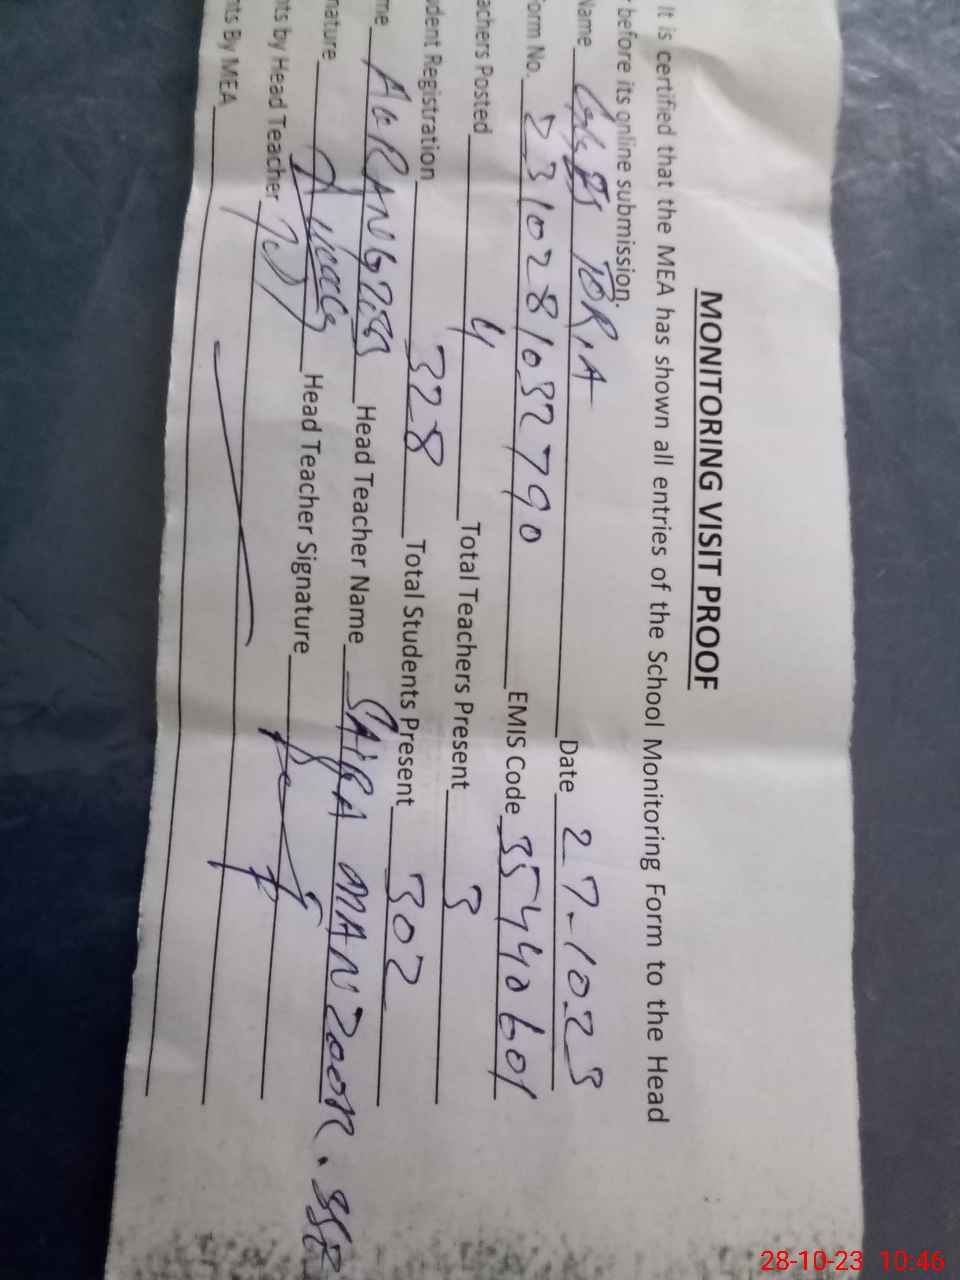 MONITORING VISIT PROOF
It is certified that the MEA has shown all entries of the School Monitoring Form to the Head
before its online submission.
Name TORIA Date 27-10.23
Form No. 2310281032790 EMIS Code 35440601
achers Posted 4 Total Teachers Present 3
dent Registration 328 Total Students Present 302
me AuRANGZEB Head Teacher Name SAIRA MANZOOR.
nature Head Teacher Signature
nts by Head Teacher
nts By MEA
28-10-23 10:46